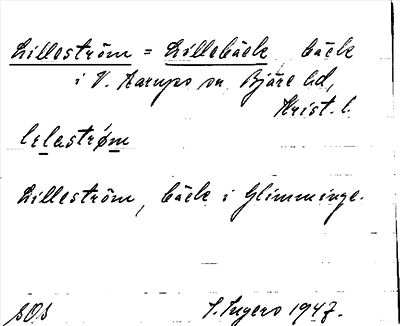 Lilleström = Lillebäck, bäck
i V. Karups sn Bjäre hd,
Krist. l.
lelastrøm
Lilleström, bäck i Glimminge.
SOS S. Ingers 1947.